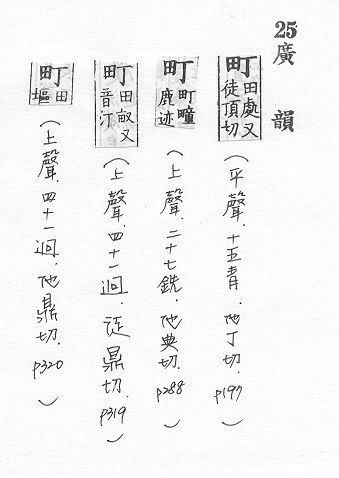 25廣韻
町田處又徒頂切(平聲.十五青.他丁切.p197)
町町疃鹿迹(上聲.二十七銑.他典切.p288)
町田畝又音汀(上聲.四十一迥.徒鼎切.p319)
町田塸(上聲.四十一迥.他鼎切.p320)